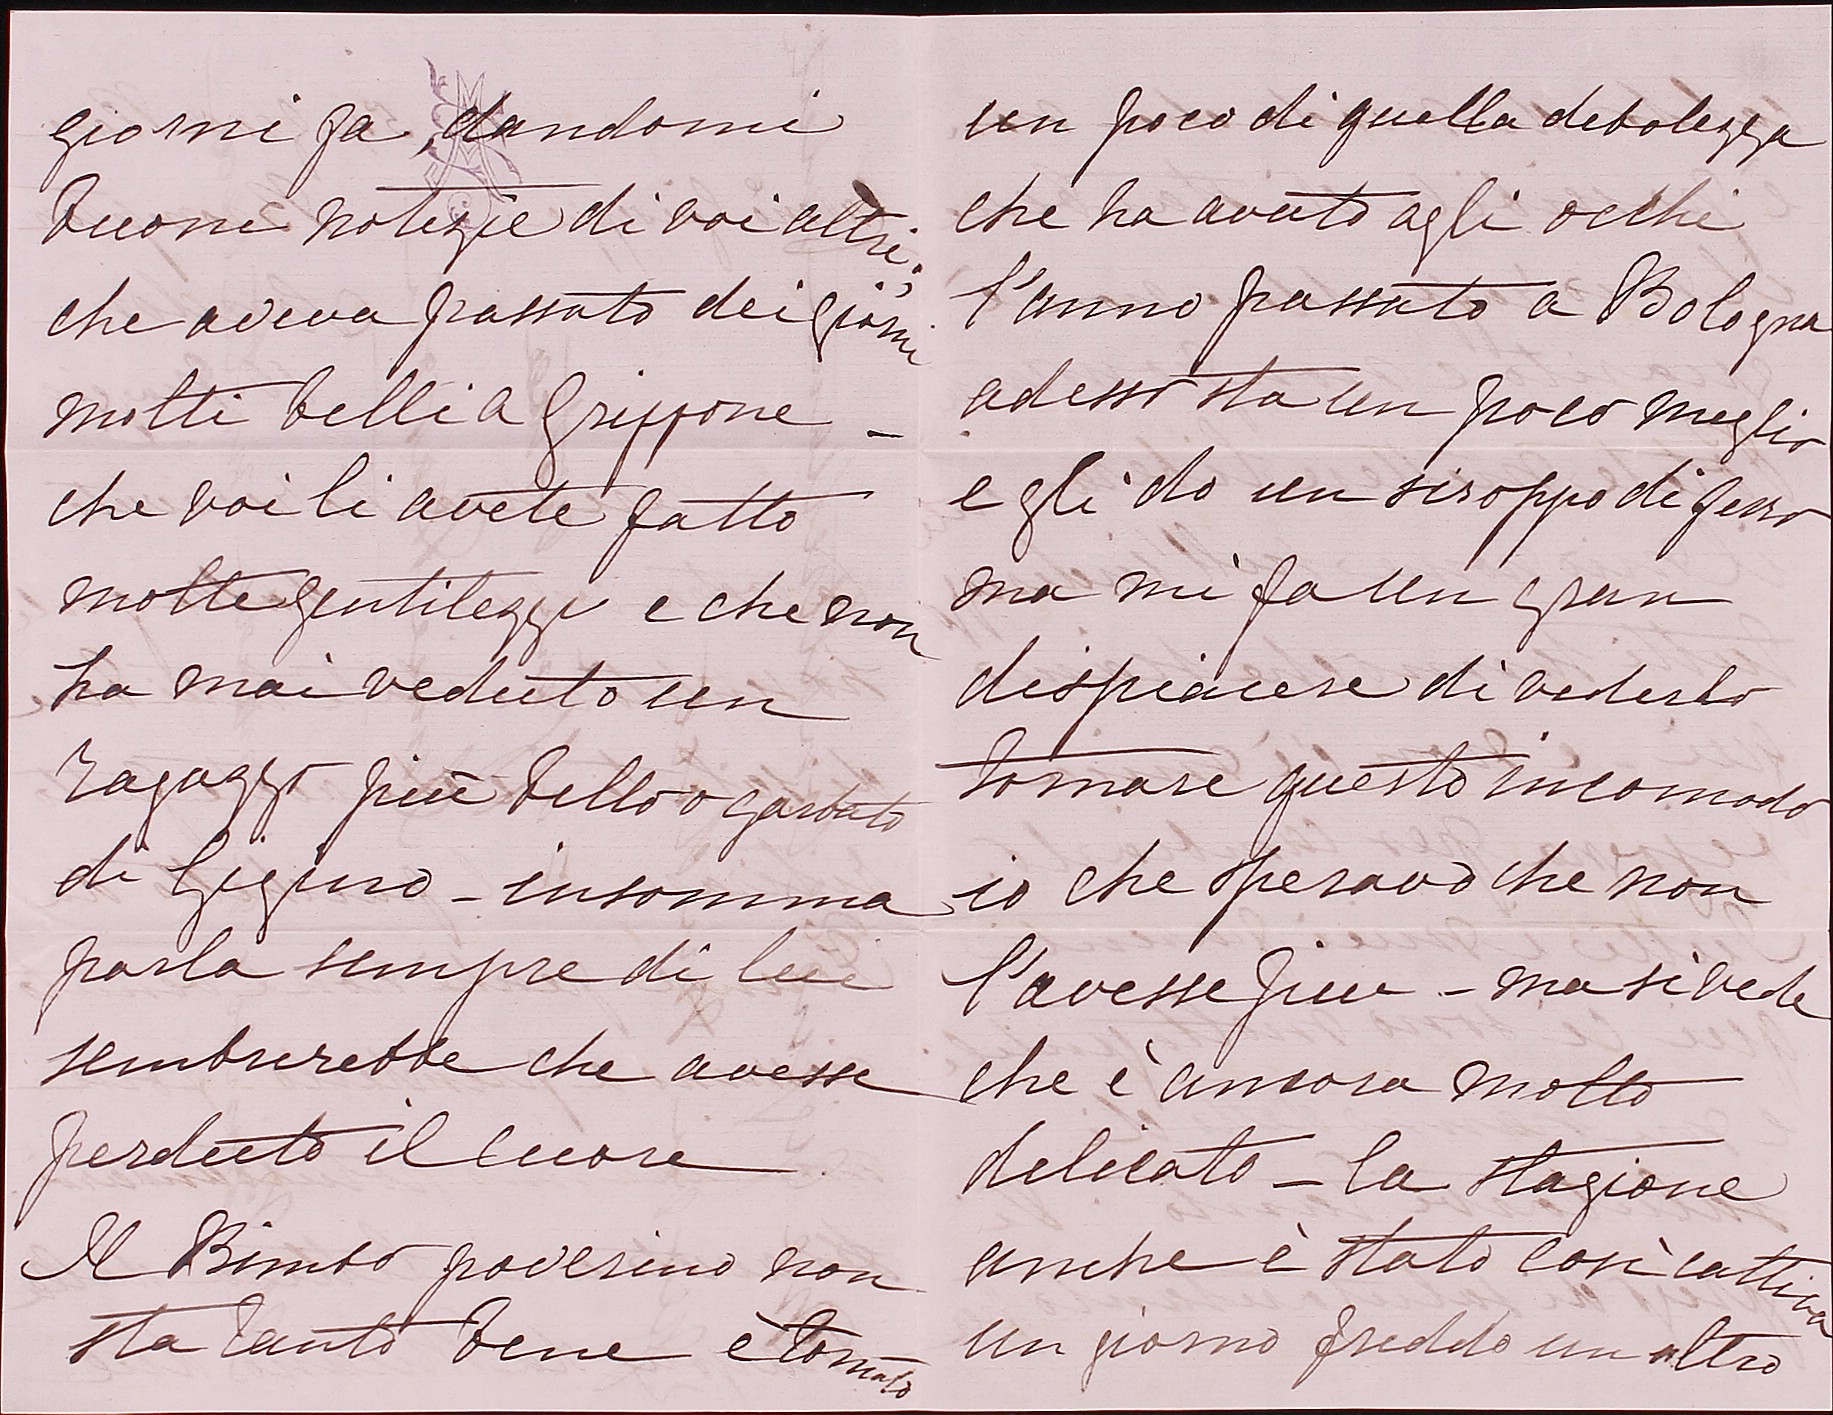 giorni fa, dandomi
buone notizie di voi altri;
che aveva passato dei giorni
molti belli a Grippone –
che voi li avete fatto
molte gentilezze e che non
ha mai veduto un
ragazzo più bello o garbato
di Gigino – insomma
parla sempre di lui
sembrerebbe che avesse
perduto il cuore
Il Bimbo poverino non
sta tanto bene è tornato
un poco di quella debolezza
che ha avuto agli occhi
l'anno passato a Bologna
adesso sta un poco meglio
e gli do un siroppo di ferro
ma mi fa un gran
dispiacere di vederlo
tornare questo incomodo
io che speravo che non
l'avesse piu – ma si vede
che è ancora molto
delicato – la stagione
anche è stato così cattiva
un giorno freddo un altro